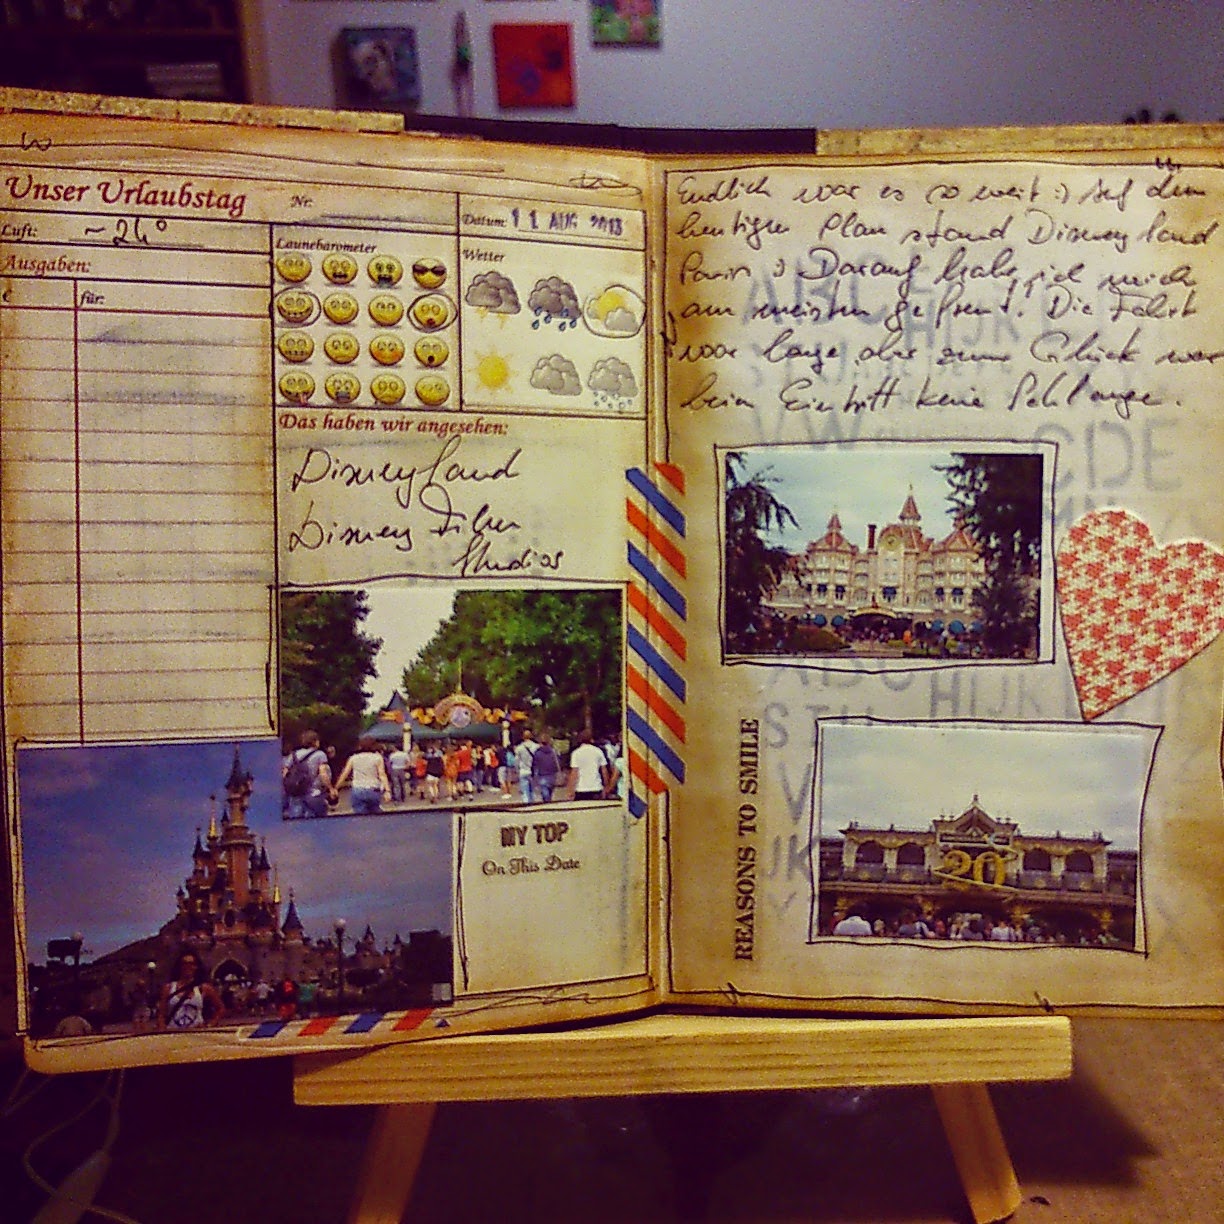 Unser Urlaubstag
Nr:
Datum: 11 AUG 2013
Luft: ~ 26°
Ausgaben:
€ für:
Launebarometer
Wetter
Das haben wir angesehen:
Disneyland
Disney Film
Studios
MY TOP
On This Date
Endlich war es so weit :) Auf dem
heutigen Plan stand Disneyland
Paris :) Darauf habe ich mich
am meisten gefreut. Die Fahrt
war lange, aber zum Glück war
beim Eintritt keine Schlange.
ABC
HIJK
VW
CDE
MN
HIJK
STU
V
JK
Y
X
REASONS TO SMILE
20